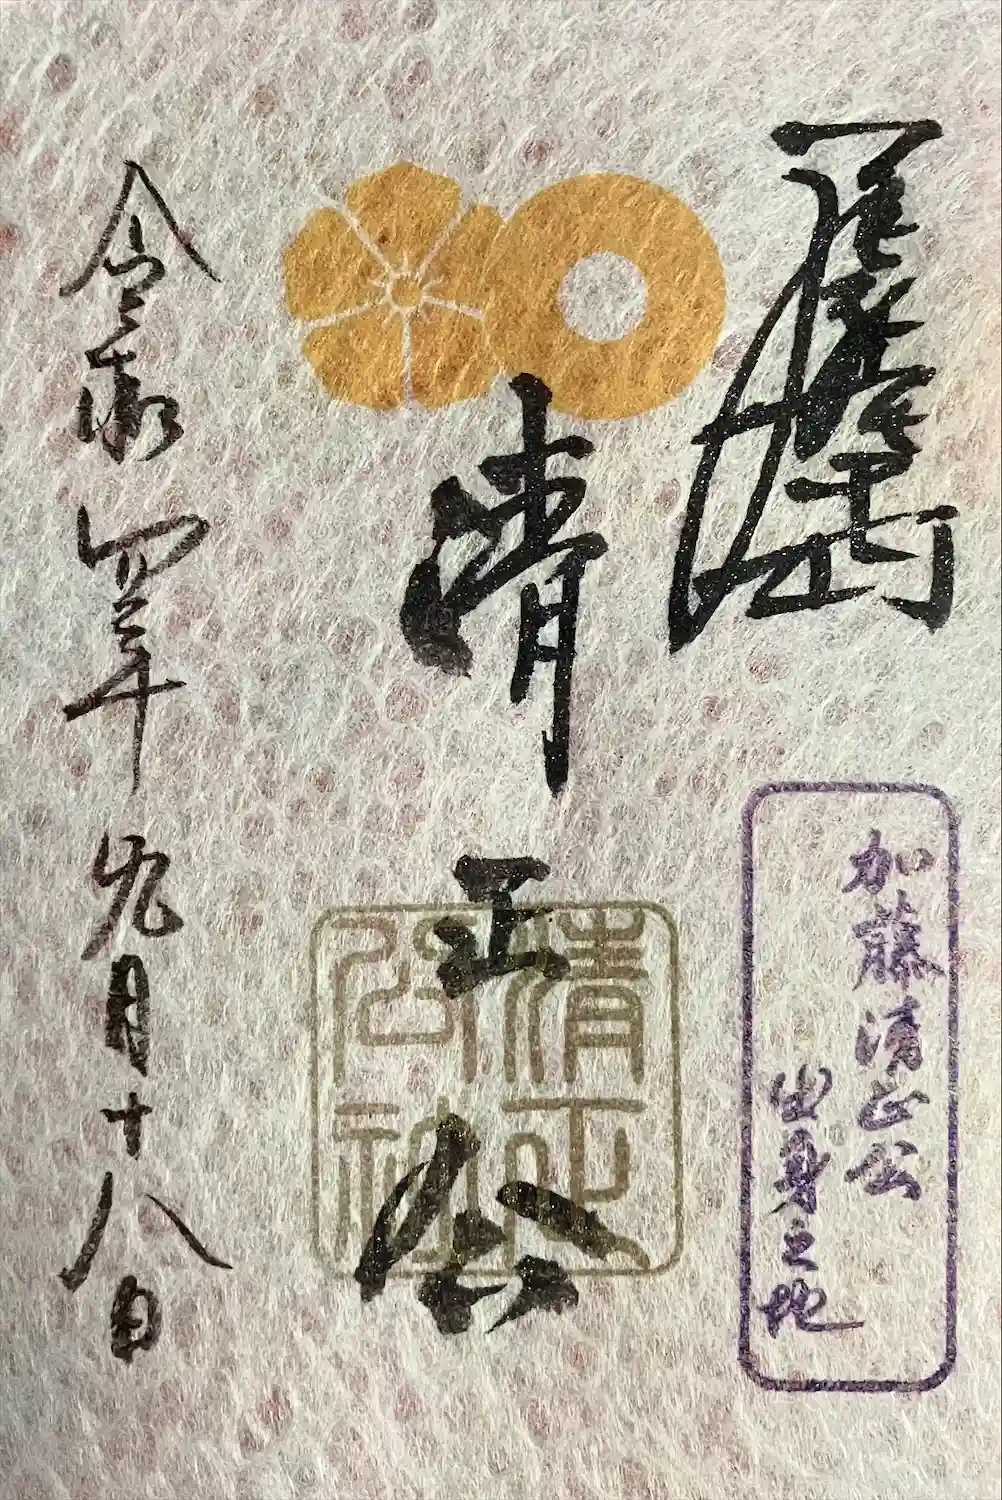 加藤清正公
出身之地
清正公
清正公社
令和四年九月十八日